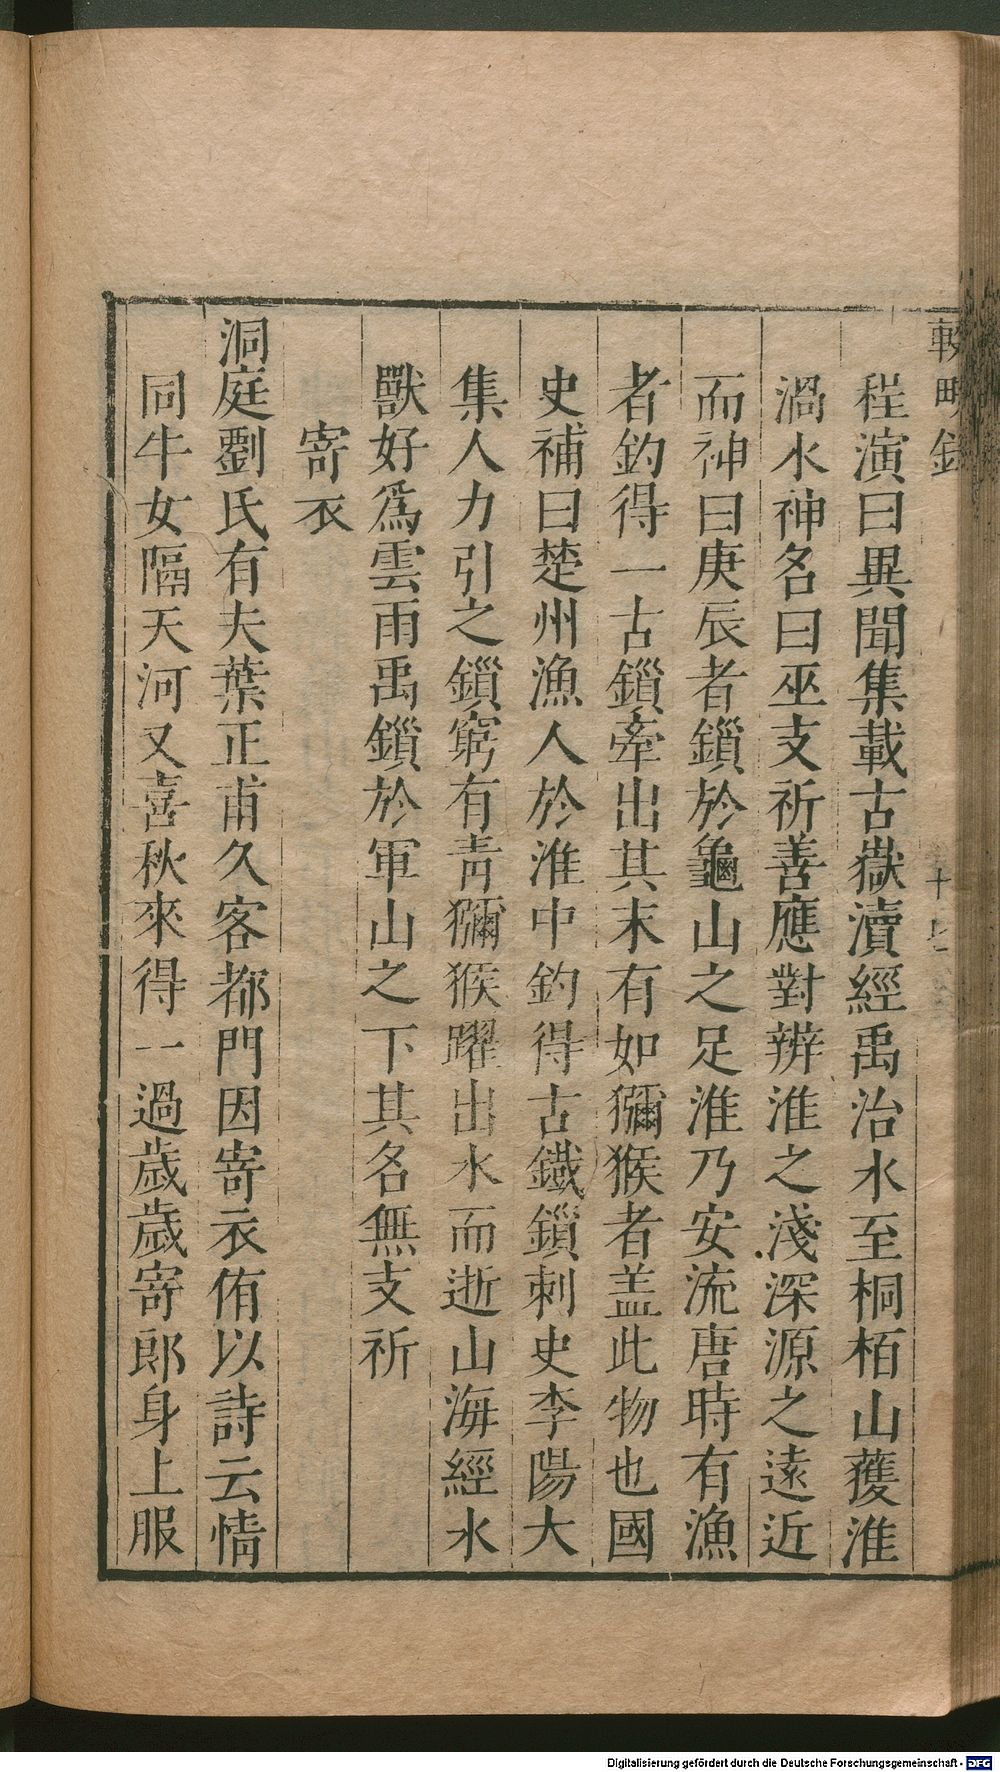 程演曰異聞集載古嶽瀆經禹治水至桐栢山獲淮
渦水神名曰巫支祈善應對辨淮之淺深源之遠近
而神曰庚辰者鎻於龜山之足淮乃安流唐時有漁
者釣得一古鎻牽出其末有如獼猴者盖此物也國
史補曰楚州漁人於淮中釣得古鐵鎻刺史李陽大
集人力引之鎻窮有青獼猴躍出水而逝山海經水
獸好爲雲雨禹鎻於軍山之下其名無支祈
寄衣
洞庭劉氏有夫葉正甫久客都門因寄衣侑以詩云情
同牛女隔天河又喜秋來得一過歲歲寄郎身上服
Digitalisierung gefördert durch die Deutsche Forschungsgemeinschaft - DFG